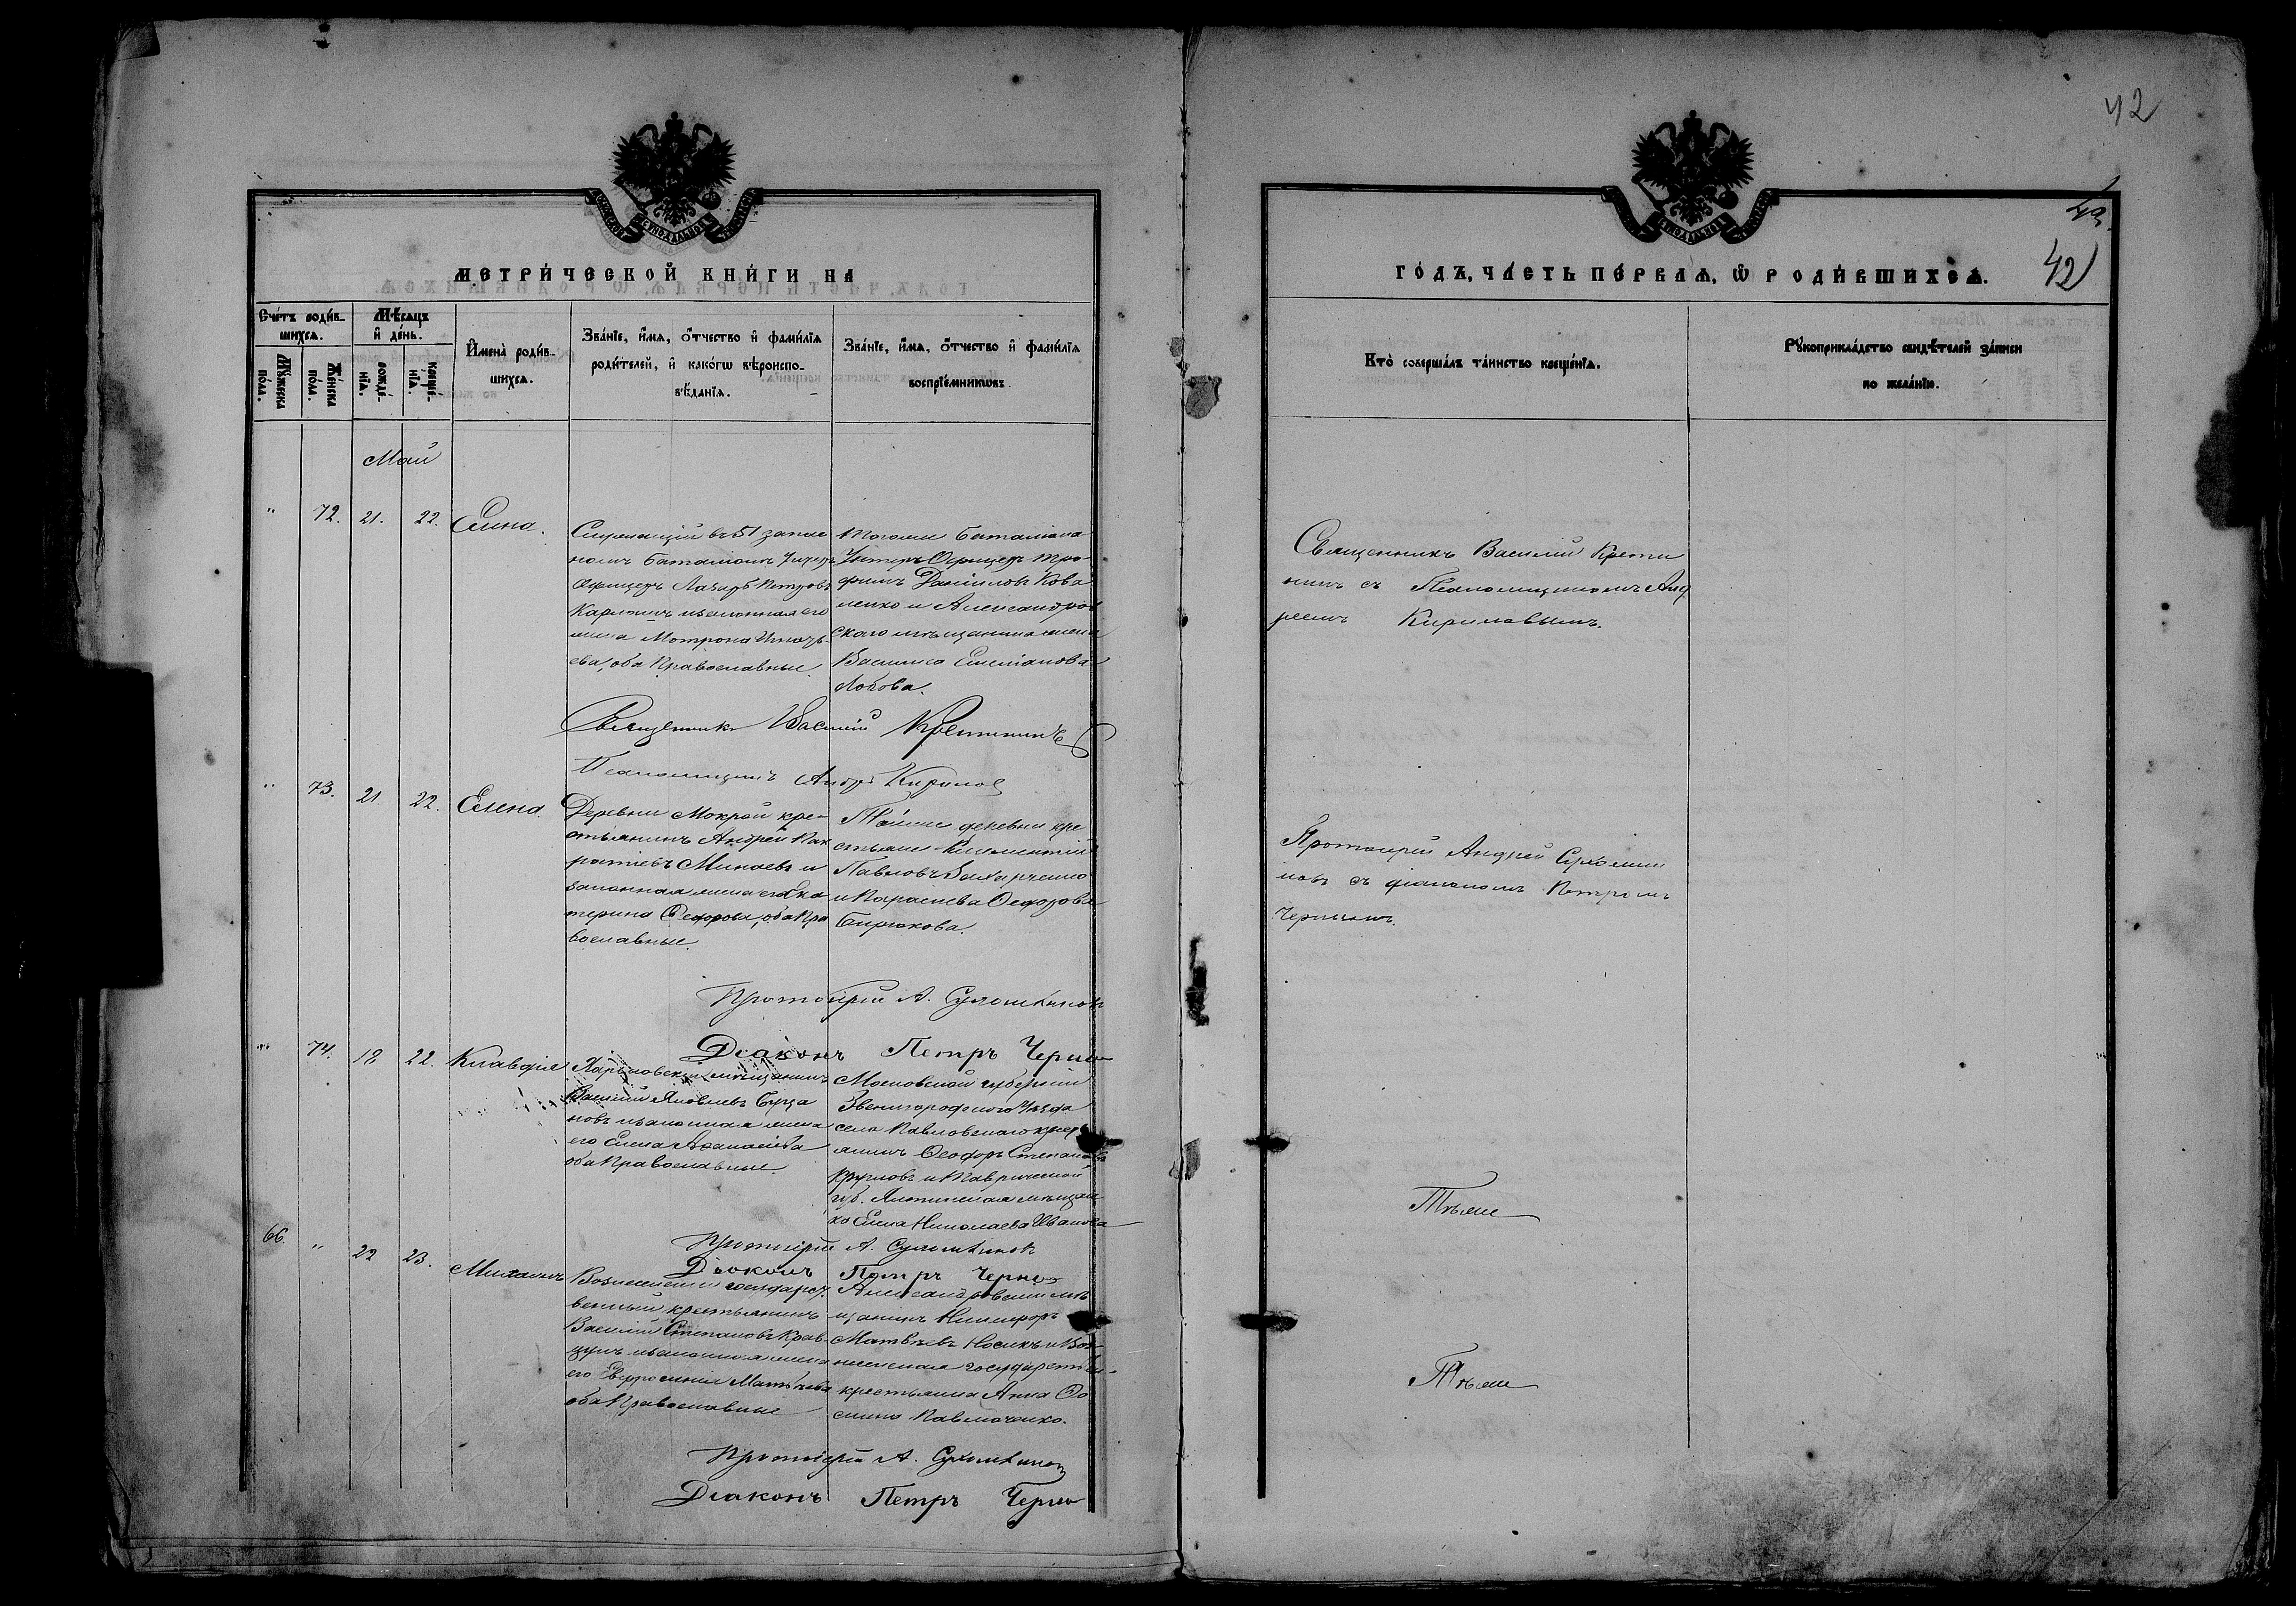 42
42
МЕТРИЧЕСКОЙ КНИГИ НА
ГОДЪ, ЧАСТЬ ПЕРВАЯ, Ѡ РОДИВШИХСЯ.
Счетъ родив-
шихся.
Мѣсяцъ
и день.
Мужеска
пола.
Женска
пола.
рожде-
нія.
креще-
нія.
Имена родив-
шихся.
Званіе, имя, отчество и фамилія
родителей, и какогѡ вѣроиспо-
вѣданія.
Званіе, имя, отчество и фамилія
воспріемникѡвъ.
Кто совершалъ таинство крещенія.
Рукоприкладство свидѣтелей записи
по желанію.
Май
" 72. 21. 22. Елена.
Служащій въ 51 запас
номъ баталіонѣ Унтеръ
Офицеръ Лазарь Петровъ
Карпинъ и законная его
жена Мотрона Игнатъ-
ева, оба Православные.
Тогоже баталіона
Унтеръ Офицеръ Тро-
фимъ Даніиловъ Кова
ленко и Александров
скаго мѣщанина жена
Василиса Емеліанова
Священникъ Василій Крети
нинъ съ Псаломщикомъ Анд
реемъ Кириловымъ.
Священникъ Василій Кретининъ
Псаломщикъ Андрей Кириловъ
" 73. 21. 22. Елена.
Деревни Мокрой кре-
стьянинъ Андрей
Минаевъ и
законная жена его Ека
терина Феодорова, оба Пра
вославные.
Тойже деревни кре
стьяне Климентій
Павловъ Захарченко
и Параскева Феодорова
Бирюкова.
Протоіерей Андрей Сухомли
новъ съ діакономъ Петромъ
Протоіерей А. Сухомлиновъ
Діаконъ Петръ
" 74. 18 22. Клавдія
Харьковскій мѣщанинъ
Василій Яковлевъ
новъ и законная жена
его Елена Афанасіева
оба Православные
Московской губерніи
Звенигородскаго Уѣзда
села Павловскаго крест
янинъ Феодоръ Степановъ
Кругловъ и Таврической
губ. Ялтинская мѣщан
ка Елена Николаева Иванова
Тѣже
Протоіерей А. Сухомлиновъ
Діаконъ Петръ
66. " 22 23. Михаилъ
Вознесенскій государст
венный крестьянинъ
Василій Степановъ Крав
цунъ и законная жена
его Евфросинія Матѣева
оба Православные
Александровскій мѣ
щанинъ Никифоръ
Матвѣевъ Носикъ и Воз
несенская государствен.
крестьянка Анна Фо
мина Павлюченко.
Тѣже
Протоіерей А. Сухомлиновъ
Діаконъ Петръ